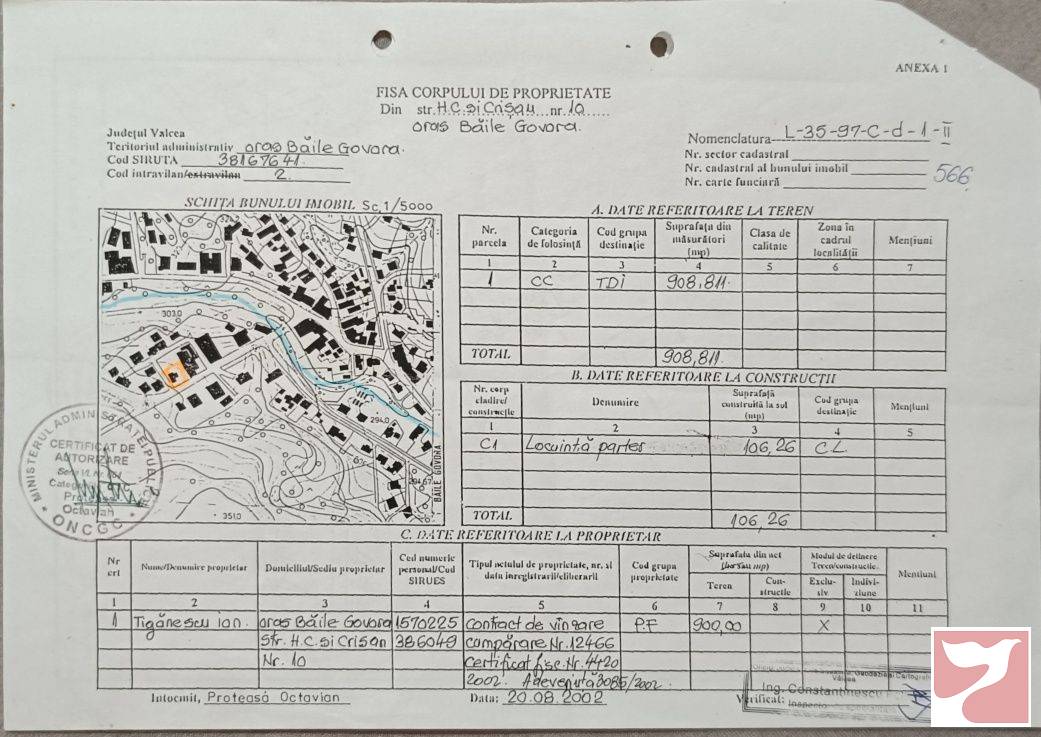 ANEXA 1
FISA CORPULUI DE PROPRIETATE
Din str. H.C. si Crişan nr. 10
oras Băile Govora.
Judeţul Valcea
Teritoriul administrativ oras Băile Govora.
Cod SIRUTA 38167641
Cod intravilan/extravilan 2.
Nomenclatura L-35-97-C-d-1-II
Nr. sector cadastral
Nr. cadastral al bunului imobil 566
Nr. carte funciară
SCHIŢA BUNULUI IMOBIL Sc 1/5000
303.0
294.0
294.67
351.0
BAILE GOVORA
A. DATE REFERITOARE LA TEREN
Nr. parcela Categoria de folosinţă Cod grupa destinaţie Suprafaţa din măsurători (mp) Clasa de calitate Zona în cadrul localităţii Menţiuni
1 2 3 4 5 6 7
1 CC TDI 908,811.
TOTAL 908,811.
B. DATE REFERITOARE LA CONSTRUCŢII
Nr. corp cladire/ constructie Denumire Suprafaţă construită la sol (mp) Cod grupa destinaţie Menţiuni
1 2 3 4 5
C1 Locuinţă parter 106,26 CL
TOTAL 106,26
MINISTERUL ADMINISTRATIEI PUBLICE
CERTIFICAT DE
AUTORIZARE
Octavian
* ONCGC *
C. DATE REFERITOARE LA PROPRIETAR
Nr crt Nume/Denumire proprietar Domiciliul/Sediu proprietar Cod numeric personal/Cod SIRUES Tipul actului de proprietate, nr. si data inregistrarii/eliberarii Cod grupa proprietate Suprafata din act (ha sau mp) Teren Con-structie Modul de detinere Teren/constructie. Exclu-siv Indivi-ziune Mentiuni
1 2 3 4 5 6 7 8 9 10 11
1 Tigănescu Ion. oras Băile Govora 1570225 Contract de vînzare P.F 900,00 X
Str. H.C. si Crisan 386049 cumpărare Nr. 12466
Nr. 10 Certificat fisc. Nr. 4420
2002. Adeverinta 3085/2002.
Intocmit, Proteasă Octavian Data: 20.08.2002 Verificat:
Ing. Constantinescu